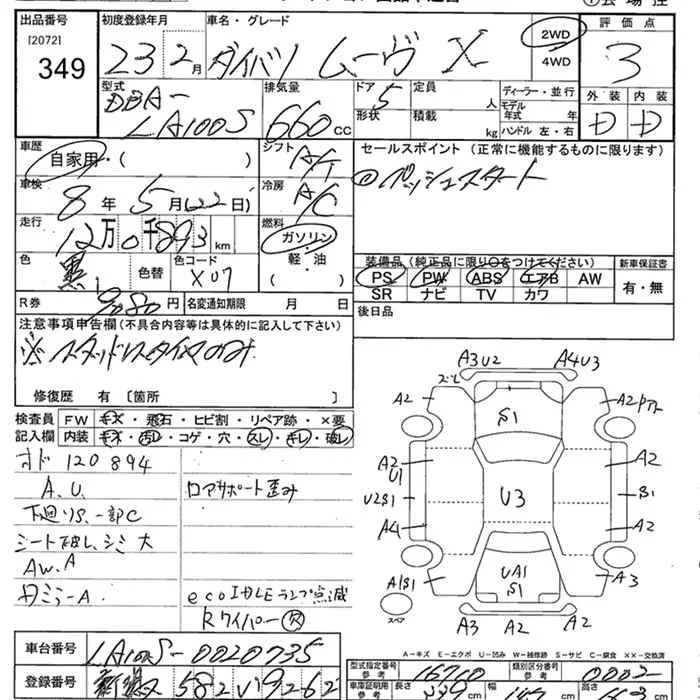 出品番号 初度登録年月 車名・グレード 評価点
[2072]
349 23 2月 ダイハツ ムーヴ X 2WD 4WD 3
型式 排気量 ドア 定員 ディーラー・並行 外装 内装
DBA- 5 人 モデル年式 年 D D
LA100S 660cc 形状 積載 kg ハンドル 左・右
車歴 シフト セールスポイント (正常に機能するものに限ります)
自家用・( ) A/T ①プッシュスタート
車検 冷房
8年 5月(22日) A/C
走行 燃料
12万0千893km ガソリン
色 色替 色コード 軽・油 装備品 (純正品に限り○をつけてください) 新車保証書
黒 X07 ( ・ ) PS PW ABS エアB AW 有・無
SR ナビ TV カワ
R券 9080円 名変通知期限 月 日 後日品
注意事項申告欄 (不具合内容等は具体的に記入して下さい)
※スタッドレスタイヤのみ
修復歴 有 [箇所 ]
検査員 FW キズ・飛石・ヒビ割・リペア跡・×要
記入欄 内装 キズ・汚レ・コゲ・穴・スレ・キレ・破レ
オド 120894
A.U. ロアサポート歪み
下廻りS.一部C
シート破レ、シミ大
AW.A
ecoIDLEランプ点滅
Rワイパー欠
A3U2 A4U3
A2 S1 A2
A2 U1 A2
U2B1 U3 B1
A4 A2
A1B1 UA1 S1 A3
スペア A3 A2 A2
A-キズ E-エクボ U-凹み W-補修跡 S-サビ C-腐食 XX-交換済
車台番号 LA100S-0020735
型式指定番号 参考 16760 類別区分番号 参考 0002
登録番号 582 9262 車庫証明用 参考 長さ 幅 高さ